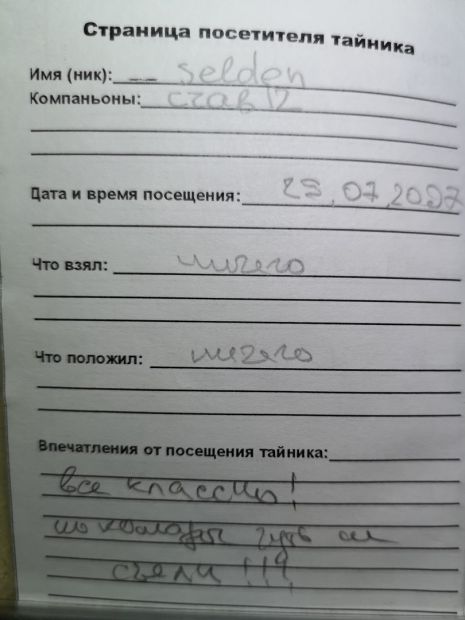 Страница посетителя тайника
Имя (ник): -- selden
Компаньоны: став12
Дата и время посещения: 29.07.2007
Что взял: ничего
Что положил: ничего
Впечатления от посещения тайника:
все классно!
но комары чуть не
съели!!!